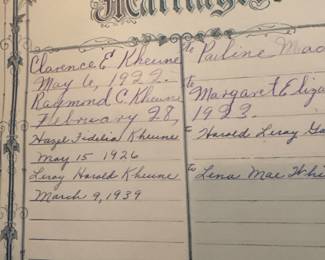 Marriages
Clarence E. Kheune to Pauline
May 6, 1922.
Raymond C. Kheune to Margaret
February 28, 1923.
Hazel Fidelia Kheune to Harold Leroy
May 15 1926
Leroy Harold Kheune to Lena Mae
March 9, 1939